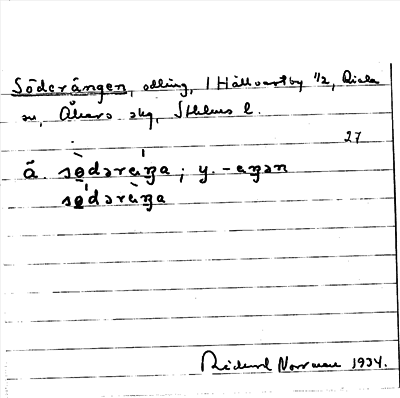 Söderängen, odling, 1 Hållvastby ½, Riala
sn, Åkers skg, Sthlms l.
27
ä. sɵ̀dəræ̀ŋa; y. -æŋən
sɵ́dəræ̀ŋa
Rickard Norrman 1934.